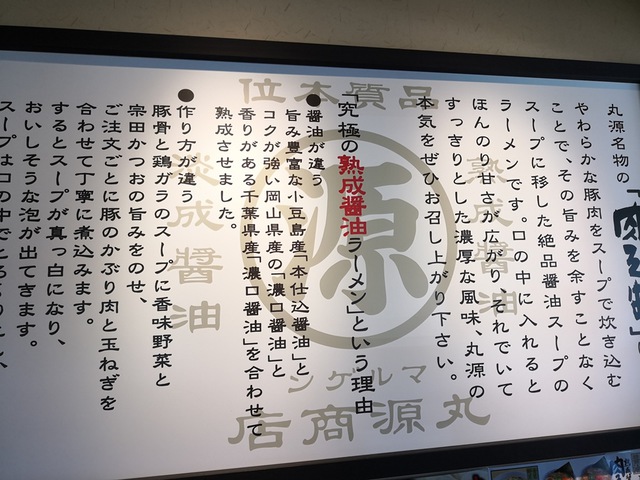 丸源名物の「肉そば」
やわらかな豚肉をスープで炊き込む
ことで、その旨みを余すことなく
スープに移した絶品醤油スープの
ラーメンです。口の中に入れると
ほんのり甘さが広がり、それでいて
すっきりとした濃厚な風味、丸源の
本気をぜひお召し上がり下さい。
「究極の熟成醤油ラーメン」という理由
●醤油が違う
旨み豊富な小豆島産「本仕込醤油」と
コクが強い岡山県産の「濃口醤油」と
香りがある千葉県産「濃口醤油」を合わせて
熟成させました。
●作り方が違う
豚骨と鶏ガラのスープに香味野菜と
宗田かつおの旨みをのせ、
ご注文ごとに豚のかぶり肉と玉ねぎを
合わせて丁寧に煮込みます。
するとスープが真っ白になり、
おいしそうな泡が出てきます。
スープは口の中でとろりとし、
位本質品
熟成醤油
源
熟成醤油
マルゲンシ
丸源商店